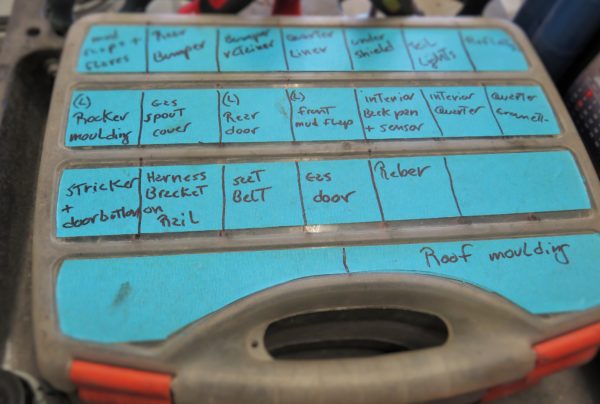 mud flaps + flares
Rear Bumper
Bumper retainer
Quarter Liner
under shield
Tail Lights
(L) Rocker moulding
Gas spout cover
(L) Rear door
(L) front mud flap
interior Back pan + sensor
interior Quarter
Quarter
STricker + door button
Harness Bracket on Rail
seat Belt
Gas door
Rebar
Roof moulding